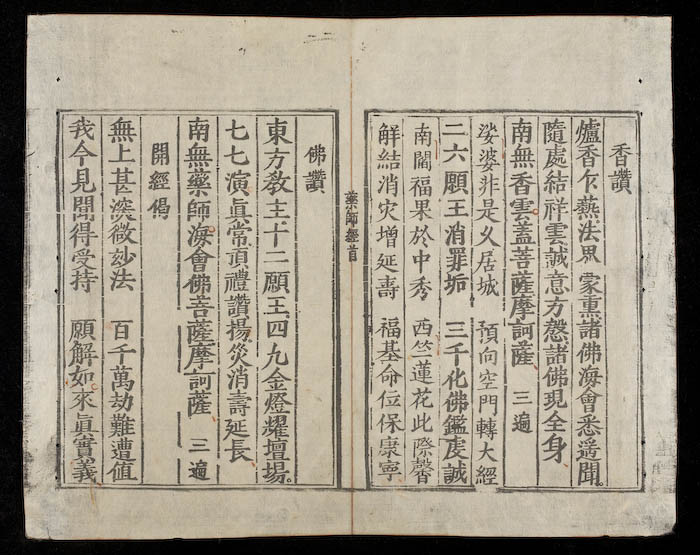 香讚
爐香乍爇法界 蒙熏諸佛海會悉遥聞。
隨處結祥雲誠意方慇諸佛現全身
南無香雲盖菩薩摩訶薩 三遍
娑婆非是久居城 預向空門轉大經
二六願王消罪垢 三千化佛鑑虔誠
南閻福果於中秀 西竺蓮花此際馨
解結消灾增延壽 福基命位保康寧
藥師經首
佛讚
東方教主十二願王四九金燈耀壇場。
七七演眞常頂禮讚揚災消壽延長
南無藥師海會佛菩薩摩訶薩 三遍
開經偈
無上甚深微妙法 百千萬劫難遭值
我今見聞得受持 願解如來眞實義